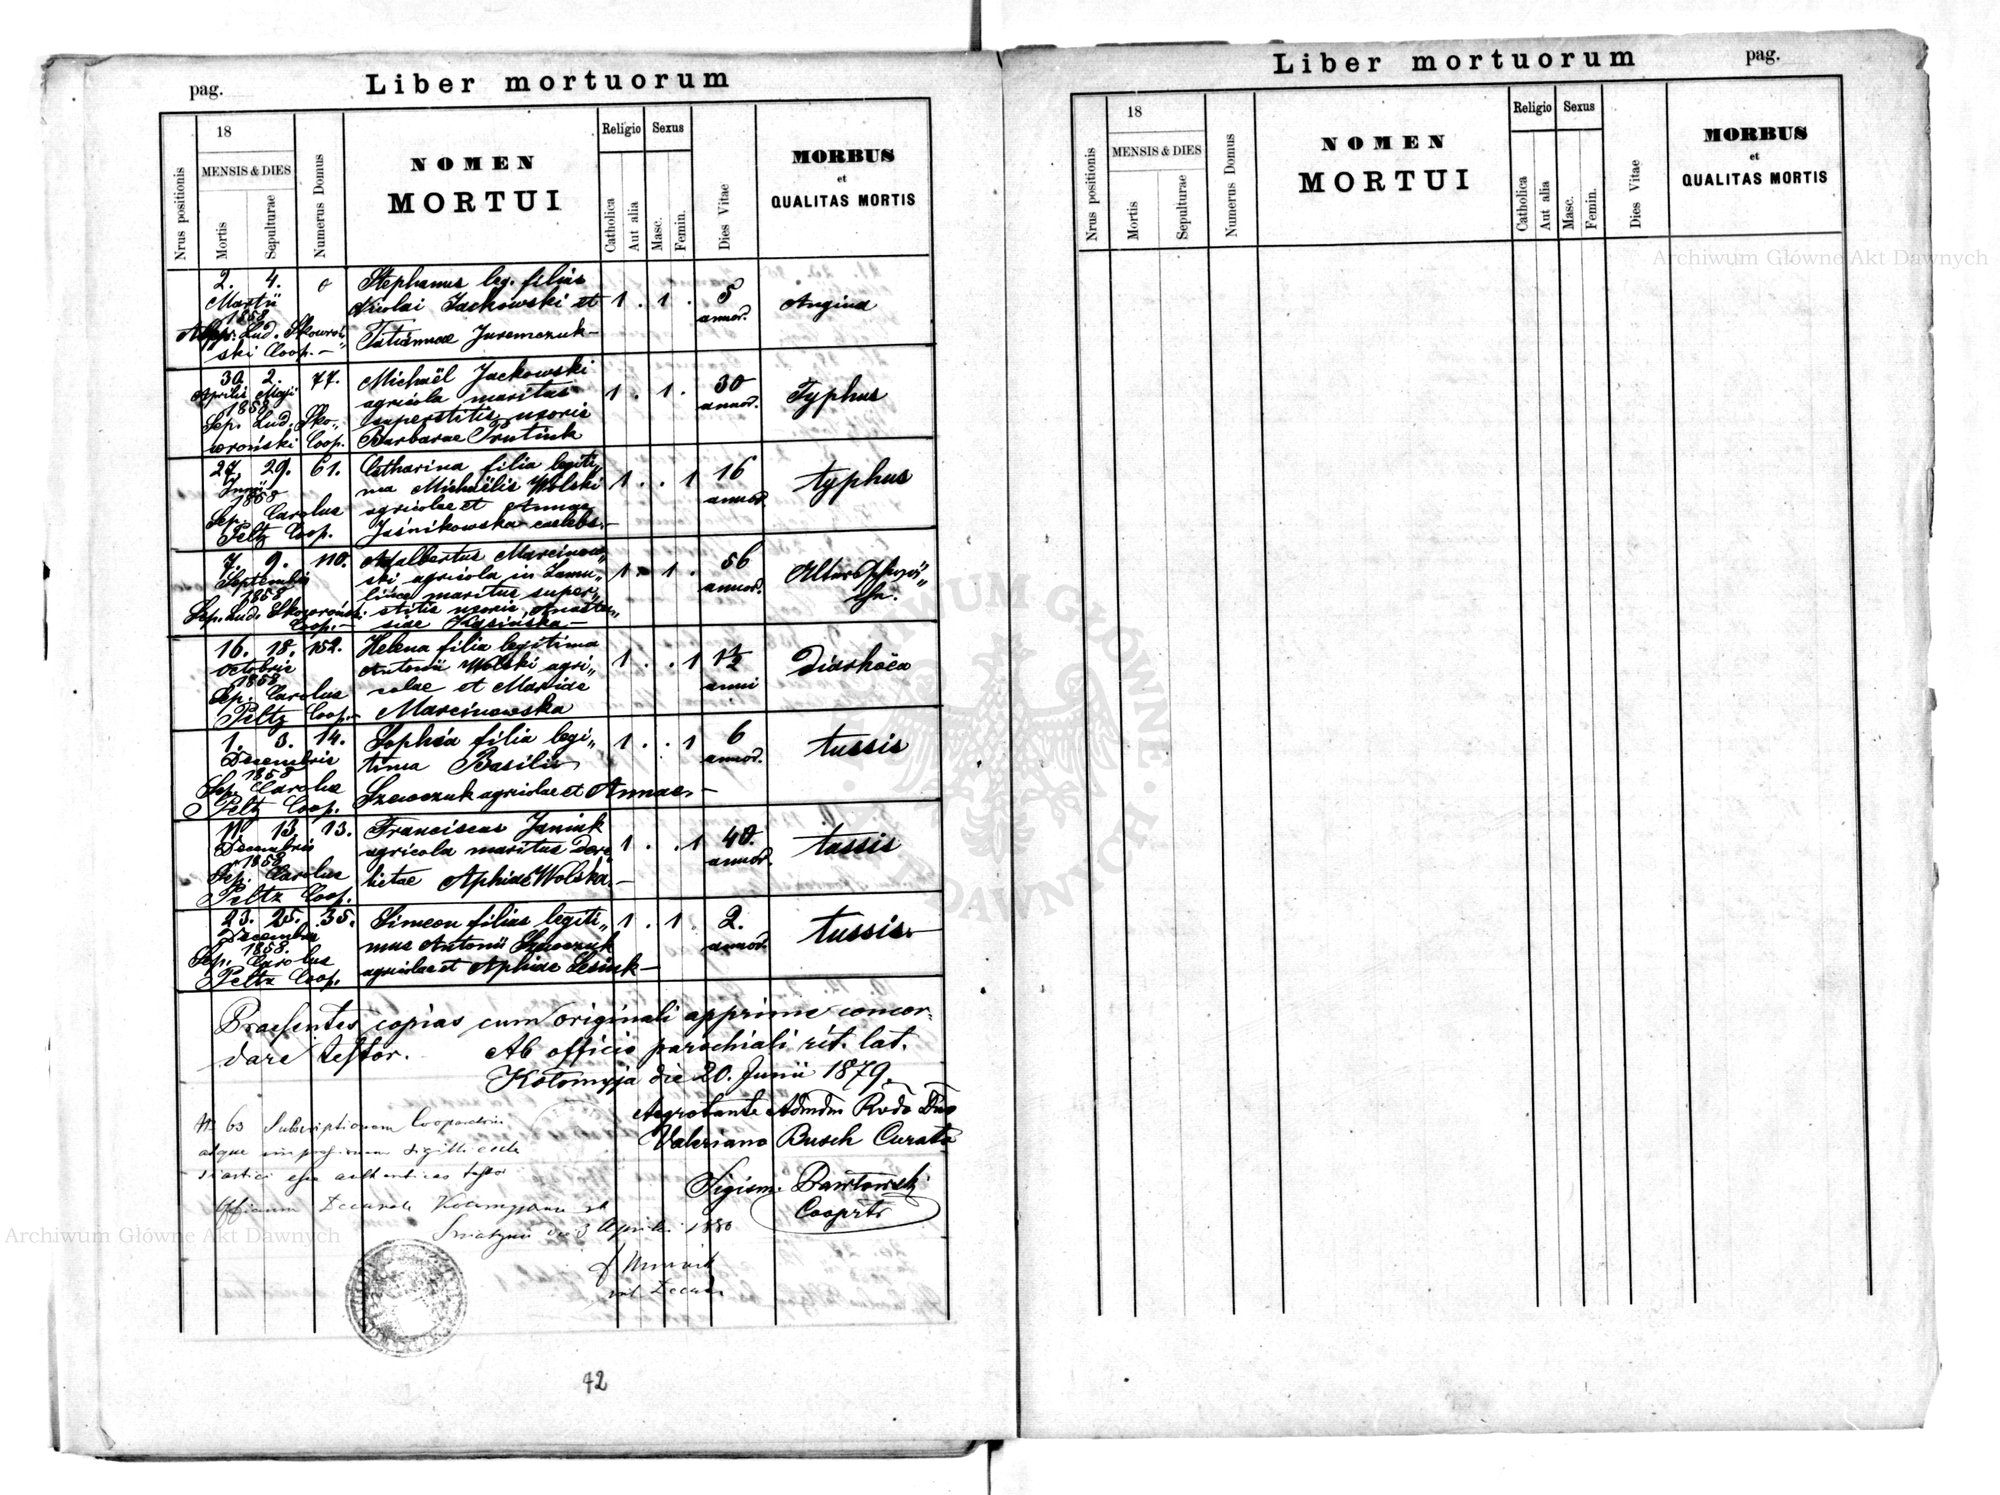 pag.
Liber mortuorum
Nrus positionis
18
MENSIS & DIES
Mortis
Sepulturae
Numerus Domus
NOMEN
MORTUI
Religio
Catholica
Aut alia
Sexus
Masc.
Femin.
Dies Vitae
MORBUS
et
QUALITAS MORTIS
2. 4.
Martii
1858
Lud. Skowroń„
ski Coop.—
Stephanus leg. filius
Nicolai Jackowski et
Tatiannae Juremczuk—
1 . 1 .
5
annor.
Angina
30 2. 77.
Aprilis Maji
1858
Sep. Lud. Sko„
wroński Coop.
Michaël Jackowski
agricola maritus
superstitis uxoris
Barbarae Prutiuk
1 . 1 .
30
annor.
Typhus
27. 29. 61.
Junii
1858
Sep. Carolus
Peltz Coop.
Catharina filia legiti„
ma Michaëlis Wolski
agricolae et Annae
Jaśnikowska caelebs.—
1 . . 1
16
annor.
typhus
7. 9. 110.
Septembris
1858
Sep. Lud. Skowroński
Coop.—
Adalbertus Marcinow„
ski agricola in
maritus super„
stitis uxoris Anasta„
siae Kasińska—
1 . 1 .
56
annor.
16. 18. 152.
Octobris
1858
Sep. Carolus
Peltz Coop.—
Helena filia legitima
Antonii Wolski agri„
colae et Mariae
Marcinowska
1 . . 1
1½
anni
Diarhöea
1. 3. 14.
Decembris
1858
Sep. Carolus
Peltz Coop.
Sophia filia legi„
tima Basilii
Szewczuk agricolae et Annae.—
1 . . 1
6
annor.
tussis
11 13 13.
Decembris
1858
Sep. Carolus
Peltz Coop.
Franciscus Janiuk
agricola maritus dere„
lictae Aphiae Wolska.—
1 . . 1
40.
annor.
tussis
23. 25. 35.
Decembris
1858.
Sep. Carolus
Peltz Coop.
Simeon filius legiti„
mus Antonii Szewczuk
agricolae et Aphiae Lesiuk—
1 . 1 .
2.
annor.
tussis.—
Praesentes copias cum originali apprime concor„
dare testor. Ab officio parochiali rit. lat.
Kołomyja die 20. Junii 1879.
Aegrotante Admdm Rvdo Dno
Valeriano Busch Curato
Sigism. Pawłowski
Cooprtr
N 63 Subscriptionem Cooperatoris
atque impressionem sigilli eccle
siastici esse authenticas testor
Officium Decanale
die 3 Aprilis 1880
42
Liber mortuorum
pag.
Nrus positionis
18
MENSIS & DIES
Mortis
Sepulturae
Numerus Domus
NOMEN
MORTUI
Religio
Catholica
Aut alia
Sexus
Masc.
Femin.
Dies Vitae
MORBUS
et
QUALITAS MORTIS
Archiwum Główne Akt Dawnych
Archiwum Główne Akt Dawnych
ARCHIWUM GŁÓWNE AKT DAWNYCH